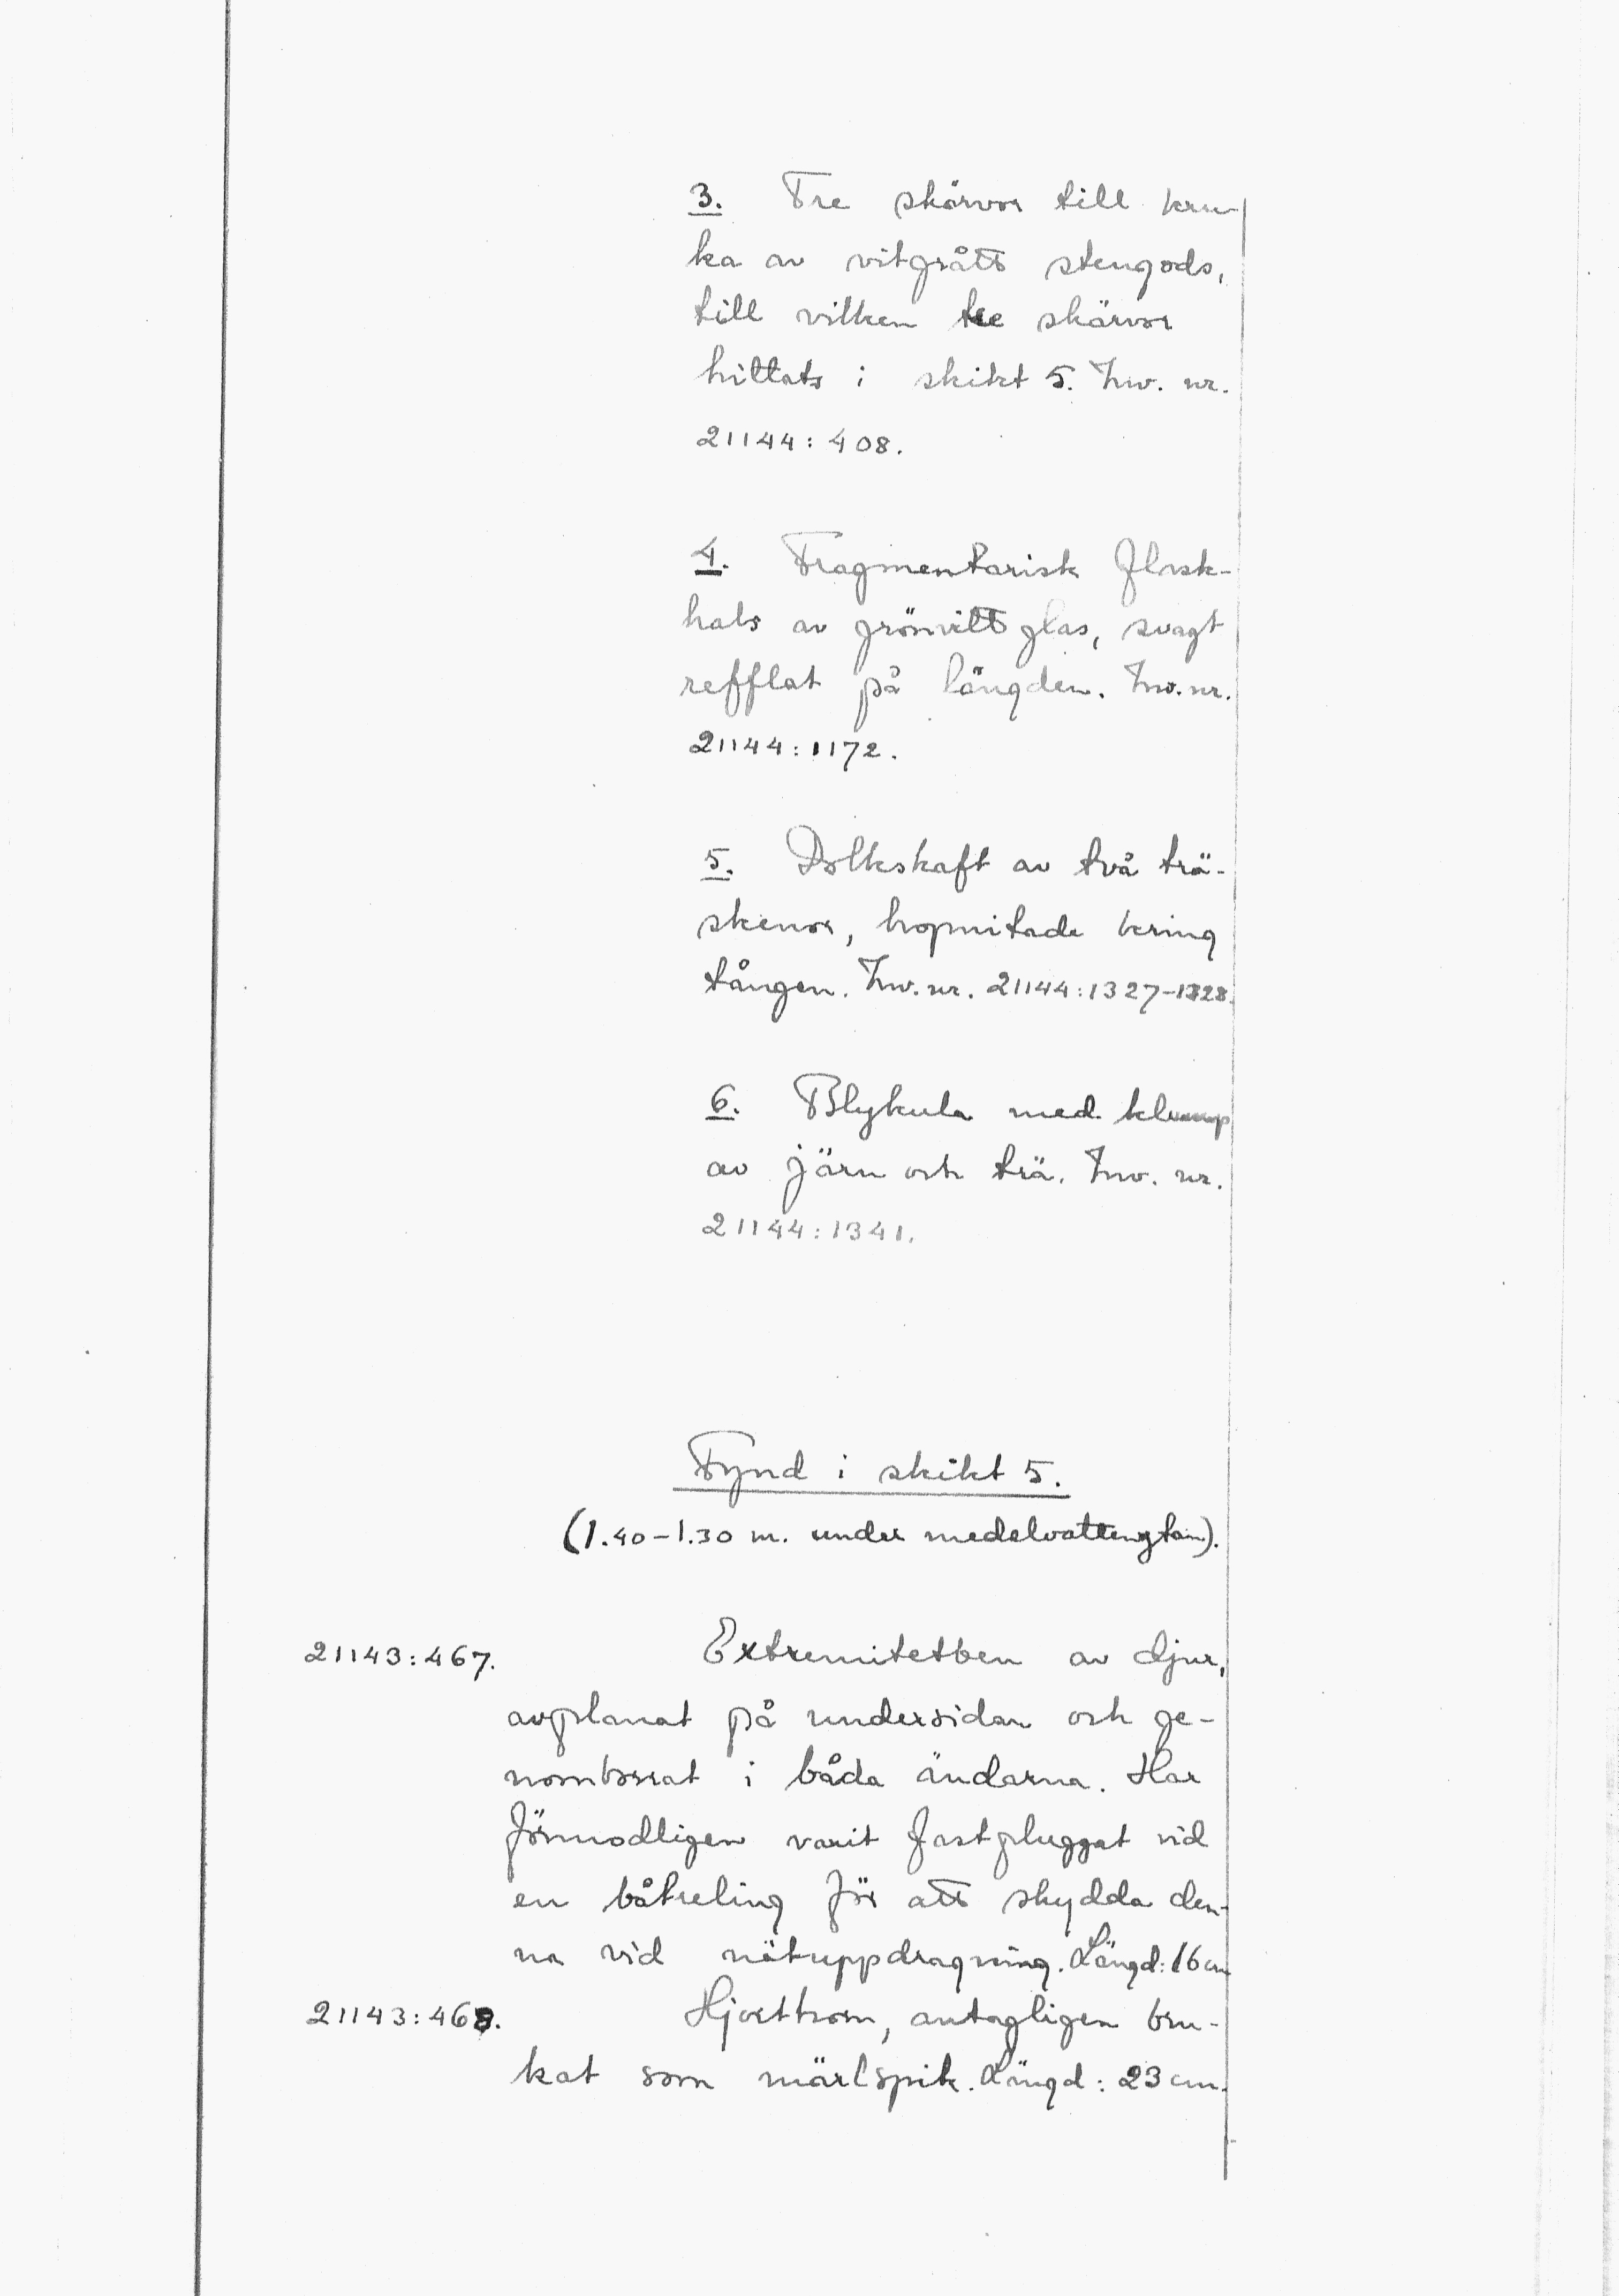 3. Tre skärvor till kru-
ka av vitgrått stengods,
till vilken tre skärvor
hittats i skikt 5. Inv. nr.
21144:408.
4. Fragmentarisk flask-
hals av grönvitt glas, svagt
refflat på längden. Inv. nr.
21144:1172.
5. Dolkskaft av två trä-
skenor, hopnitade kring
tången. Inv. nr. 21144:1327-1328.
6. Blykula med klump
av järn och trä. Inv. nr.
21144:1341.
Fynd i skikt 5.
(1.40-1.30 m. under medelvattenytan).
21143:467. Extremitetben av djur,
avplanat på undersidan och ge-
nomborrat i båda ändarna. Har
förmodligen varit fastpluggat vid
en båtreling för att skydda den-
na vid nätuppdragning. Längd: 16 cm
21143:468. Hjorthorn, antagligen bru-
kat som märlspik. Längd: 23 cm.